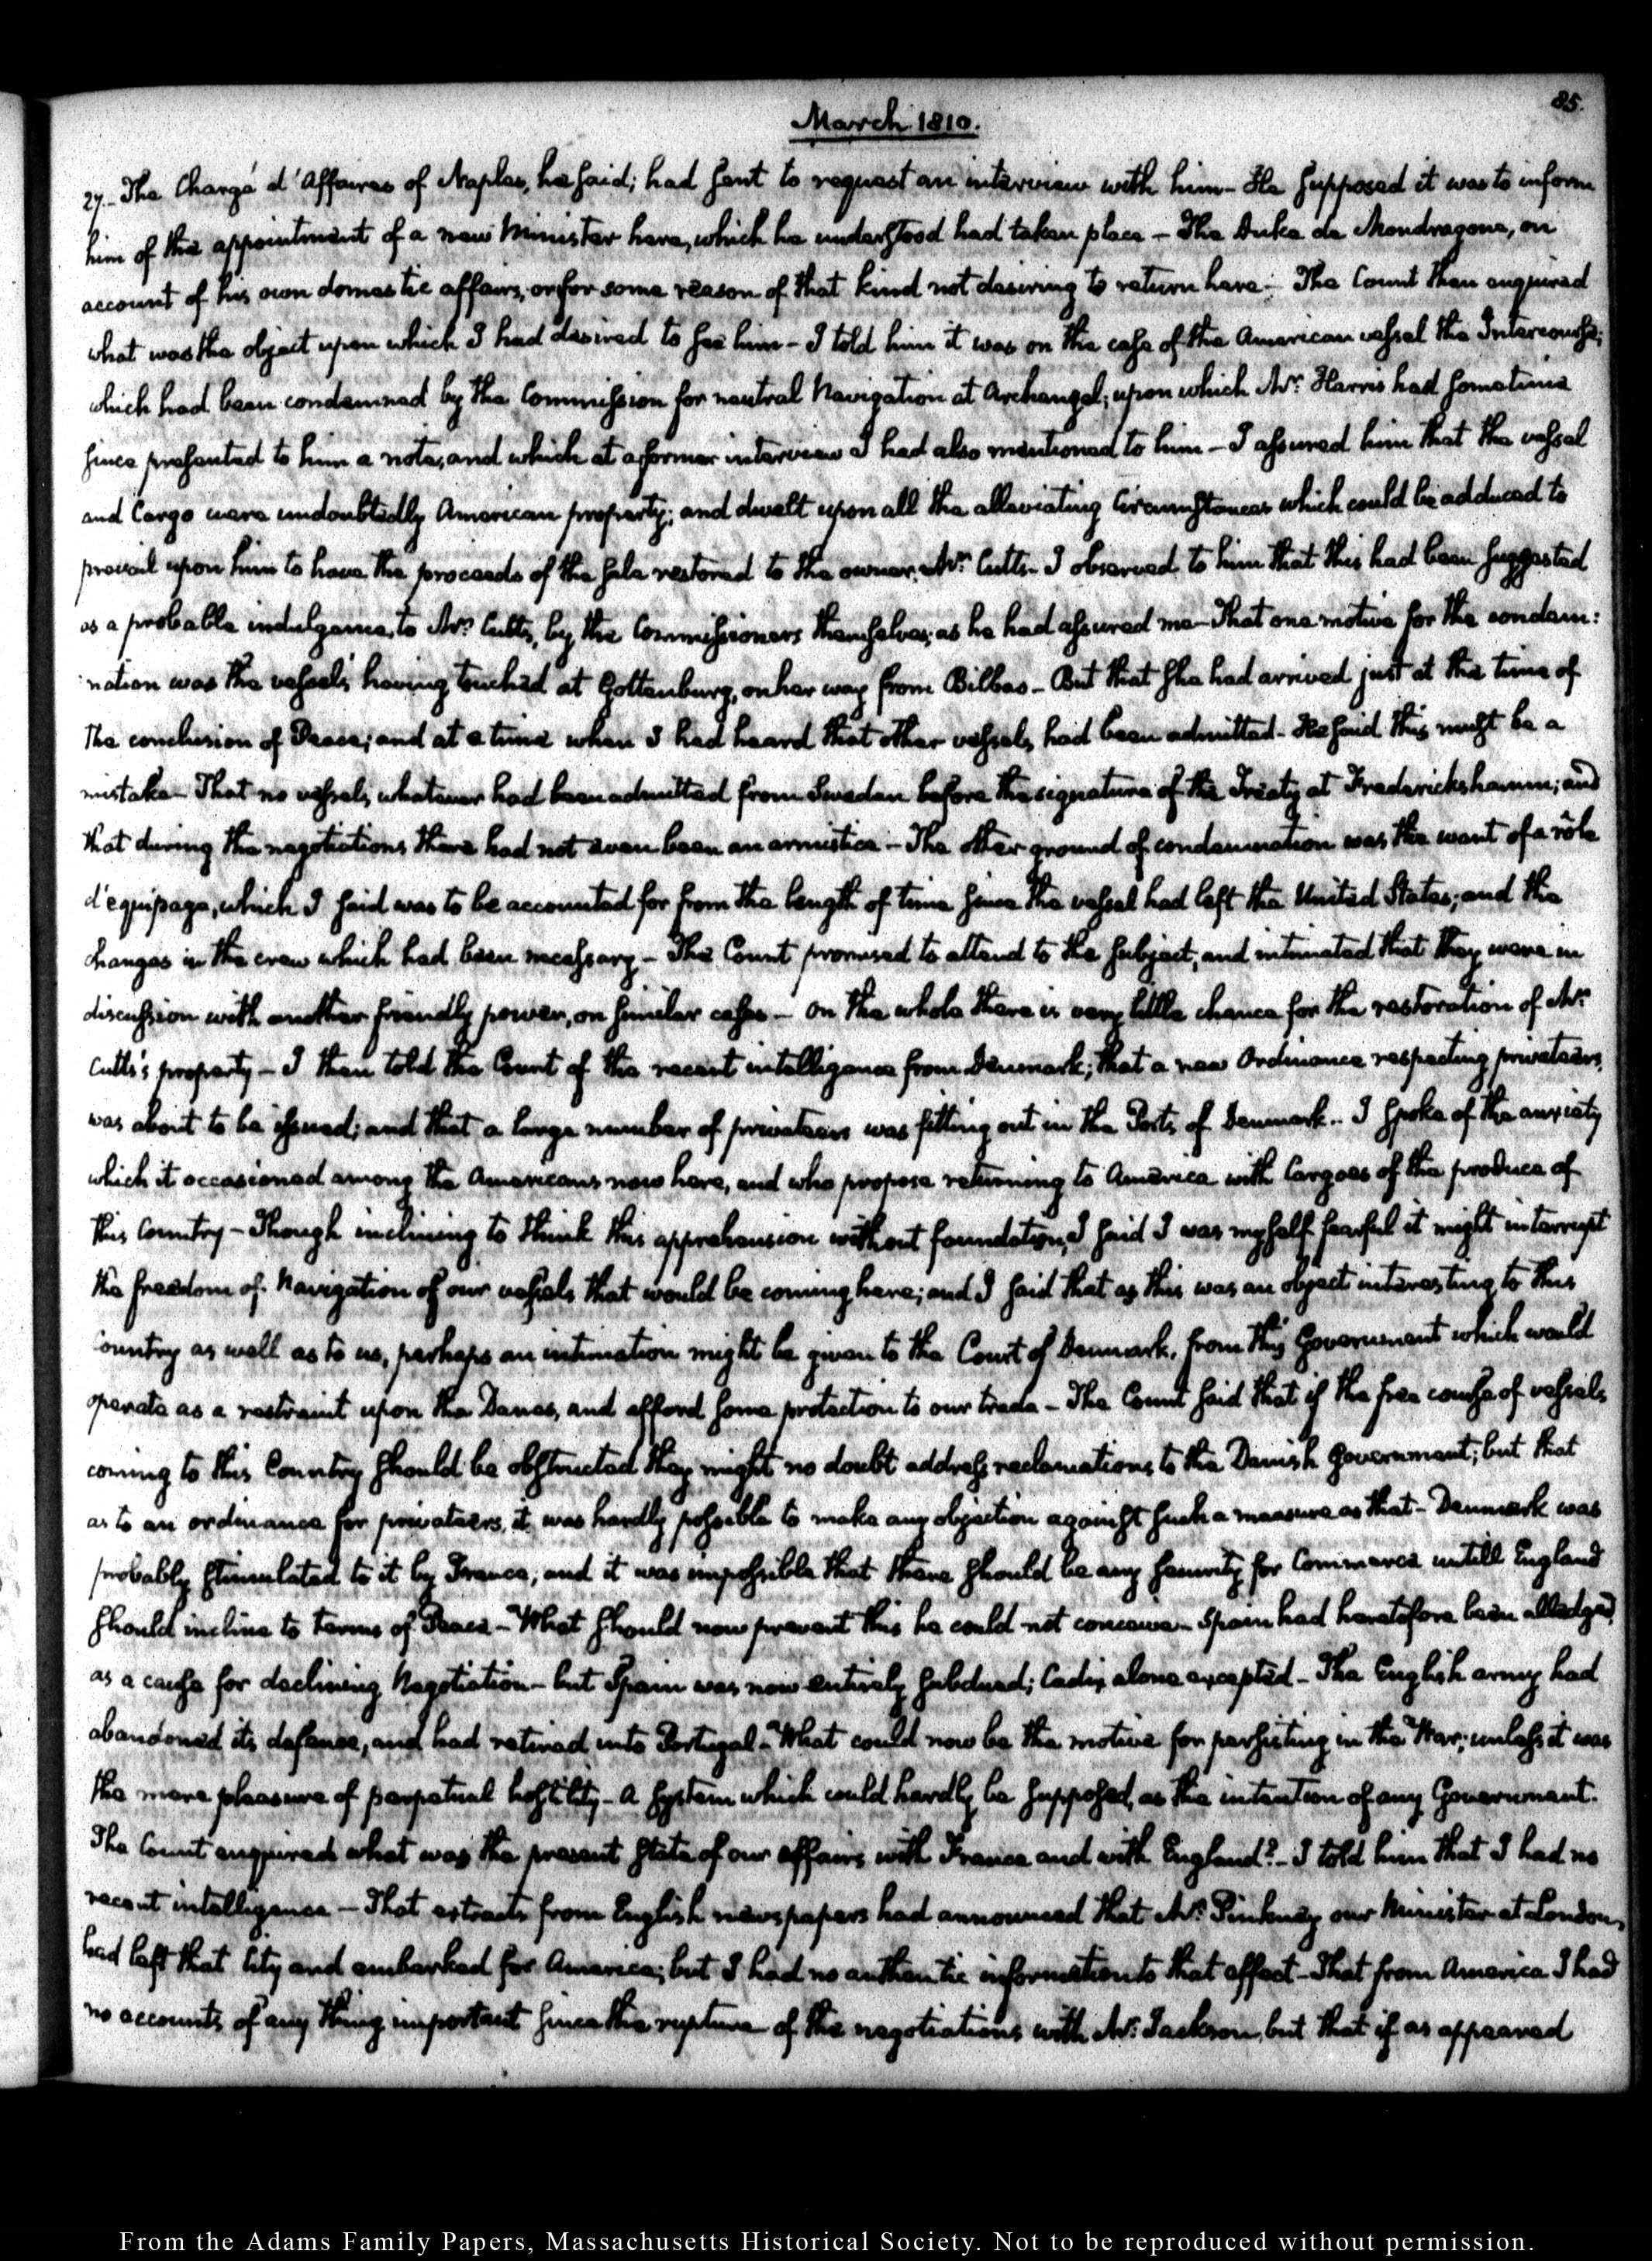 85.
March 1810.
27. The Chargé d'Affaires of Naples, he said; had sent to request an interview with him - He supposed it was to inform
him of the appointment of a new Minister here, which he understood had taken place - The Duke de Mondragone, on
account of his own domestic affairs, or for some reason of that kind not desiring to return here - The Count then enquired
what was the object upon which I had desired to see him - I told him it was on the case of the American vessel the Intercourse;
which had been condemned by the Commission for neutral Navigation at Archangel; upon which Mr. Harris had sometime
since presented to him a note, and which at a former interview I had also mentioned to him - I assured him that the vessel
and Cargo were undoubtedly American property; and dwelt upon all the alleviating Circumstances which could be adduced to
prevail upon him to have the proceeds of the sale restored to the owner, Mr. Cutts - I observed to him that this had been suggested
as a probable indulgence, to Mr. Cutts, by the Commissioners themselves; as he had assured me - That one motive for the condem:
:nation was the vessel's having touched at Gottenburg, on her way from Bilbao - But that she had arrived just at the time of
the conclusion of Peace; and at a time when I had heard that other vessels had been admitted - He said this must be a
mistake - That no vessels whatever had been admitted from Sweden before the signature of the Treaty at Fredericksham; and
that during the negotiations there had not even been an armistice - The other ground of condemnation was the want of a rôle
d'equipage, which I said was to be accounted for from the length of time since the vessel had left the United States; and the
changes in the crew which had been necessary - The Count promised to attend to the subject, and intimated that they were in
discussion with another friendly power, on similar cases - On the whole there is very little chance for the restoration of Mr.
Cutts's property - I then told the Count of the recent intelligence from Denmark; that a new Ordinance respecting privateers,
was about to be issued; and that a large number of privateers was fitting out in the Ports of Denmark.. I spoke of the anxiety
which it occasioned among the Americans now here, and who propose returning to America with Cargoes of the produce of
this Country - Though inclining to think this apprehension without foundation, I said I was myself fearful it might interrupt
the freedom of Navigation of our vessels that would be coming here; and I said that as this was an object interesting to this
Country as well as to us, perhaps an intimation might be given to the Court of Denmark, from this Government which would
operate as a restraint upon the Danes, and afford some protection to our trade - The Count said that if the free course of vessels
coming to this Country should be obstructed they might no doubt address reclamations to the Danish Government; but that
as to an ordinance for privateers, it was hardly possible to make any objection against such a measure as that - Denmark was
probably stimulated to it by France; and it was impossible that there should be any security for Commerce untill England
should incline to terms of Peace - What should now prevent this he could not conceive - Spain had heretofore been alledged,
as a cause for declining Negotiation - but Spain was now entirely subdued; Cadiz alone excepted - The English army had
abandoned its defence, and had retired into Portugal - What could now be the motive for persisting in the War; unless it was
the mere pleasure of perpetual hostility - A system which could hardly be supposed, as the intention of any Government.
The Count enquired what was the present state of our affairs with France and with England? - I told him that I had no
recent intelligence - That extracts from English newspapers had announced that Mr. Pinkney our Minister at London,
had left that City and embarked for America; but I had no authentic information to that effect - That from America I had
no accounts of any thing important since the rupture of the negotiations with Mr. Jackson, but that if as appeared
From the Adams Family Papers, Massachusetts Historical Society. Not to be reproduced without permission.